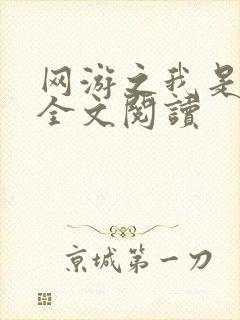 网游之我是
全文閱讀
京城第一刀